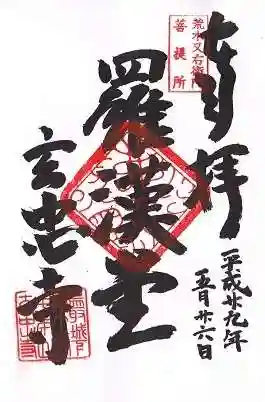 奉拝
荒木又右衛門
菩提所
平成廿九年
五月廿六日
羅漢堂
玄忠寺